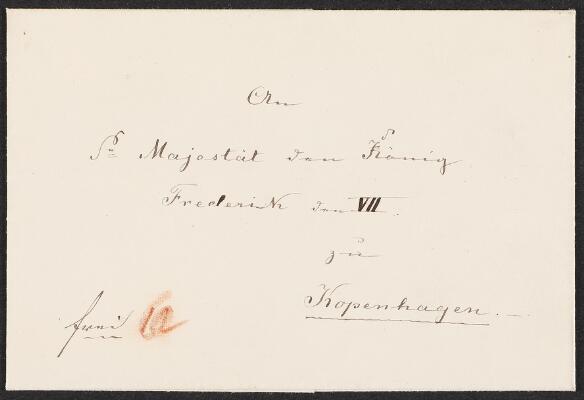 An
Sr Majestät den König
Frederik den VII.
zu
Kopenhagen.
frei